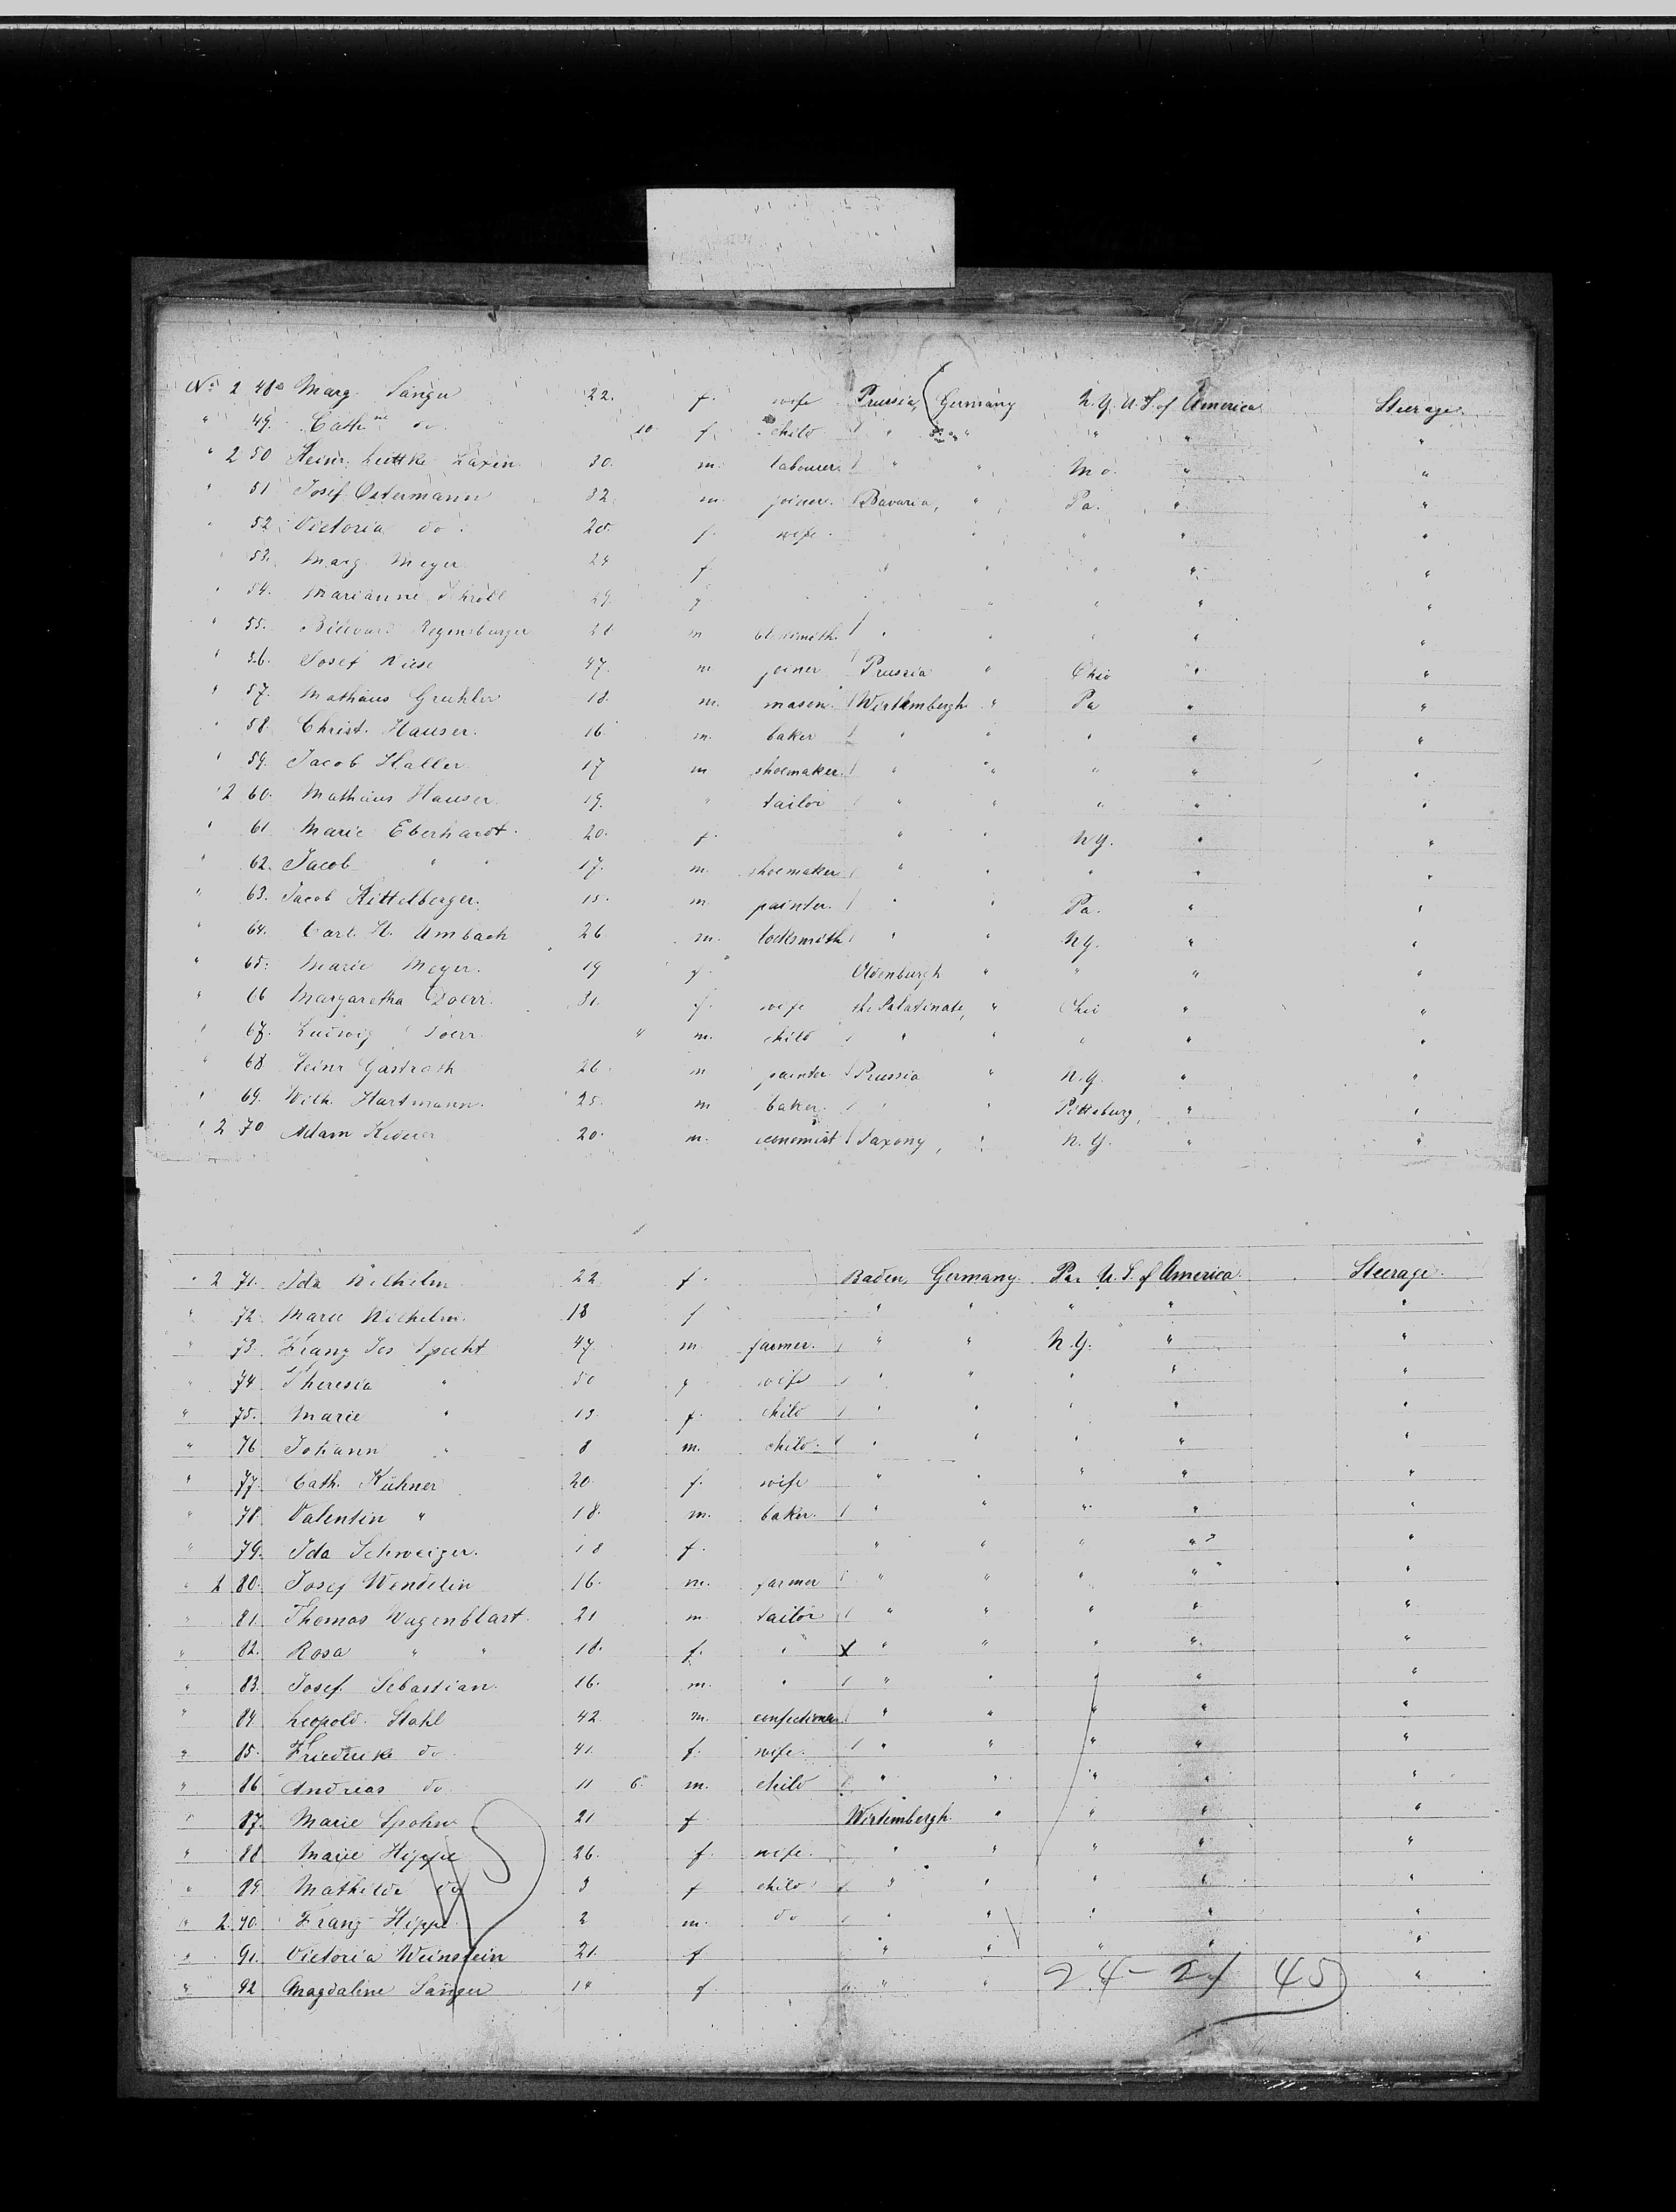 No 2 48 Marg. Sänger 22. f. wife Prussia, Germany N.Y. U.S. of America Steerage.
" 49. Cathne do. 10 f. child " " " " "
" 2 50 Heinr. Luttke 30. m. labourer. " " Mo. " "
" 51 Josef Ostermann 32 m. joiner. Bavaria, " Pa. " "
" 52 Victoria do. 20. f. wife. " " " " "
" 53. Marg. Meyer 24 f " " " " "
" 54. Marianne 29. f " " " " "
" 55. Regensburger m " " " " "
" 56. Josef 47. m joiner Prussia " Ohio " "
" 57. Mathäus Gruhler 18. m. mason. Wirtembergh " Pa " "
" 58. Christ. Hauser. 16. m. baker " " " " "
" 59. Jacob Haller 17 m shoemaker. " " " " "
" 2 60. Mathäus Hauser. 19. " tailor " " " " "
" 61. Marie Eberhardt. 20. f. " " N.Y. " "
" 62. Jacob " " 17. m. shoemaker " " " " "
" 63. Jacob Kittelberger. 15. m. painter. " " Pa. " "
" 64. Carl H. Ambach 26 m. locksmith " " N.Y. " "
" 65. Marie Meyer. 19 f. Oldenburgh " " " "
" 66 Margaretha Doerr. 31. f. wife the Palatinate, " Ohio " "
" 67. Ludwig Doerr m. child " " " " "
" 68 Heinr Gastroth 26. m painter Prussia " N.Y. " "
" 69. Wilh. Hartmann. 25. m baker. " " Pittsburg, " "
" 2 70 Adam 20. m. economist Saxony, " N.Y. " "
" 2 71. Ida Wilhelm 22 f. Baden, Germany. Pa. U.S. of America. Steerage.
" 72. Marie Wilhelm. 18 f " " " " "
" 73. Franz Jos Specht 47 m. farmer. " " N.Y. " "
" 74 Theresia " 50 f wife " " " " "
" 75. Marie " 13. f. child " " " " "
" 76 Johann " 8 m. child. " " " " "
" 77. Cath. Kühner 20. f. wife " " " " "
" 78. Valentin " 18. m. baker. " " " " "
" 79. Ida Schweizer. 18 f. " " " " "
" 2 80. Josef Wendelin 16. m. farmer " " " " "
" 81. Thomas Wagenblast. 21 m tailor " " " " "
" 82. Rosa " " 18. f. " X " " " " "
" 83. Josef Sebastian. 16. m. " " " " " "
" 84 Leopold. Stahl 42 m. confectioner " " " " "
" 85. Friedrike do. 41. f. wife. " " " " "
" 86 Andreas do. 11 6. m. child " " " " "
" 87. Marie Spohn 21 f Wirtembergh " " " "
" 88 Marie Hippe 26. f. wife. " " " " "
" 89. Mathilde do 3 f child " " " " "
" 2. 90. Franz Hippe. 2 m. do " " " " "
" 91. Victoria Weinstein 21. f " " " " "
" 92 Magdaline Sänger f " " 24-21 45 "